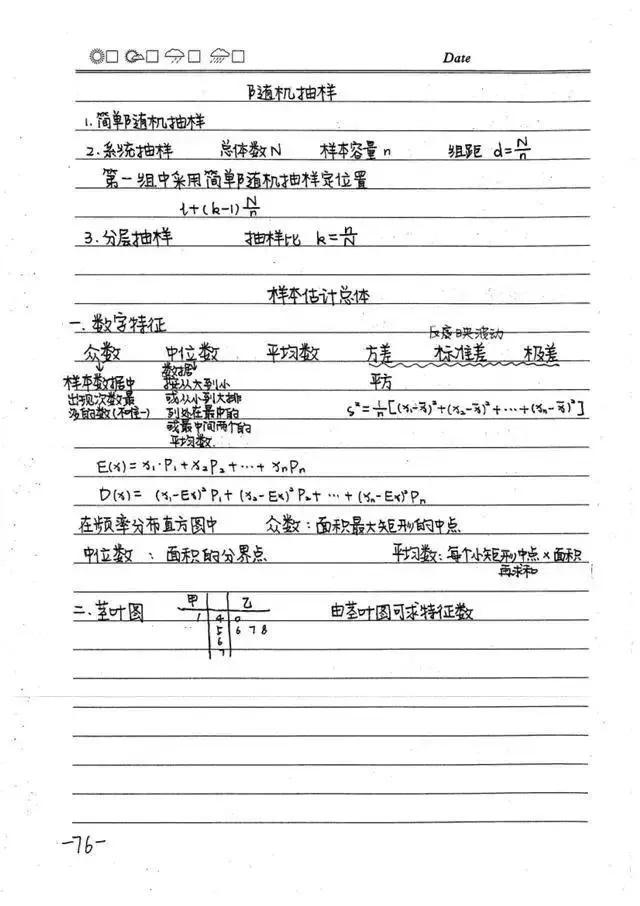 Date
随机抽样
1.简单随机抽样
2.系统抽样 总体数N 样本容量n 组距 d=N/n
第一组中采用简单随机抽样定位置
l+(k-1)N/n
3.分层抽样 抽样比 k=n/N
样本估计总体
一.数字特征
反应映波动
众数 中位数 平均数 方差 标准差 极差
样本数据中出现次数最多的数(不唯一)
数据按从大到小或从小到大排列处在最中的或最中间两个的平均数.
平方
s²=1/n[(x₁-x̄)²+(x₂-x̄)²+…+(xn-x̄)²]
E(x)=x₁·P₁+x₂P₂+…+xnPn
D(x)=(x₁-Ex)²P₁+(x₂-Ex)²P₂+…+(xn-Ex)²Pn
在频率分布直方图中 众数:面积最大矩形的中点
中位数:面积的分界点 平均数:每个小矩形中点×面积
再求和
二.茎叶图 甲 乙 由茎叶图可求特征数
1 4 0
5 6 7 8
6
7
-76-